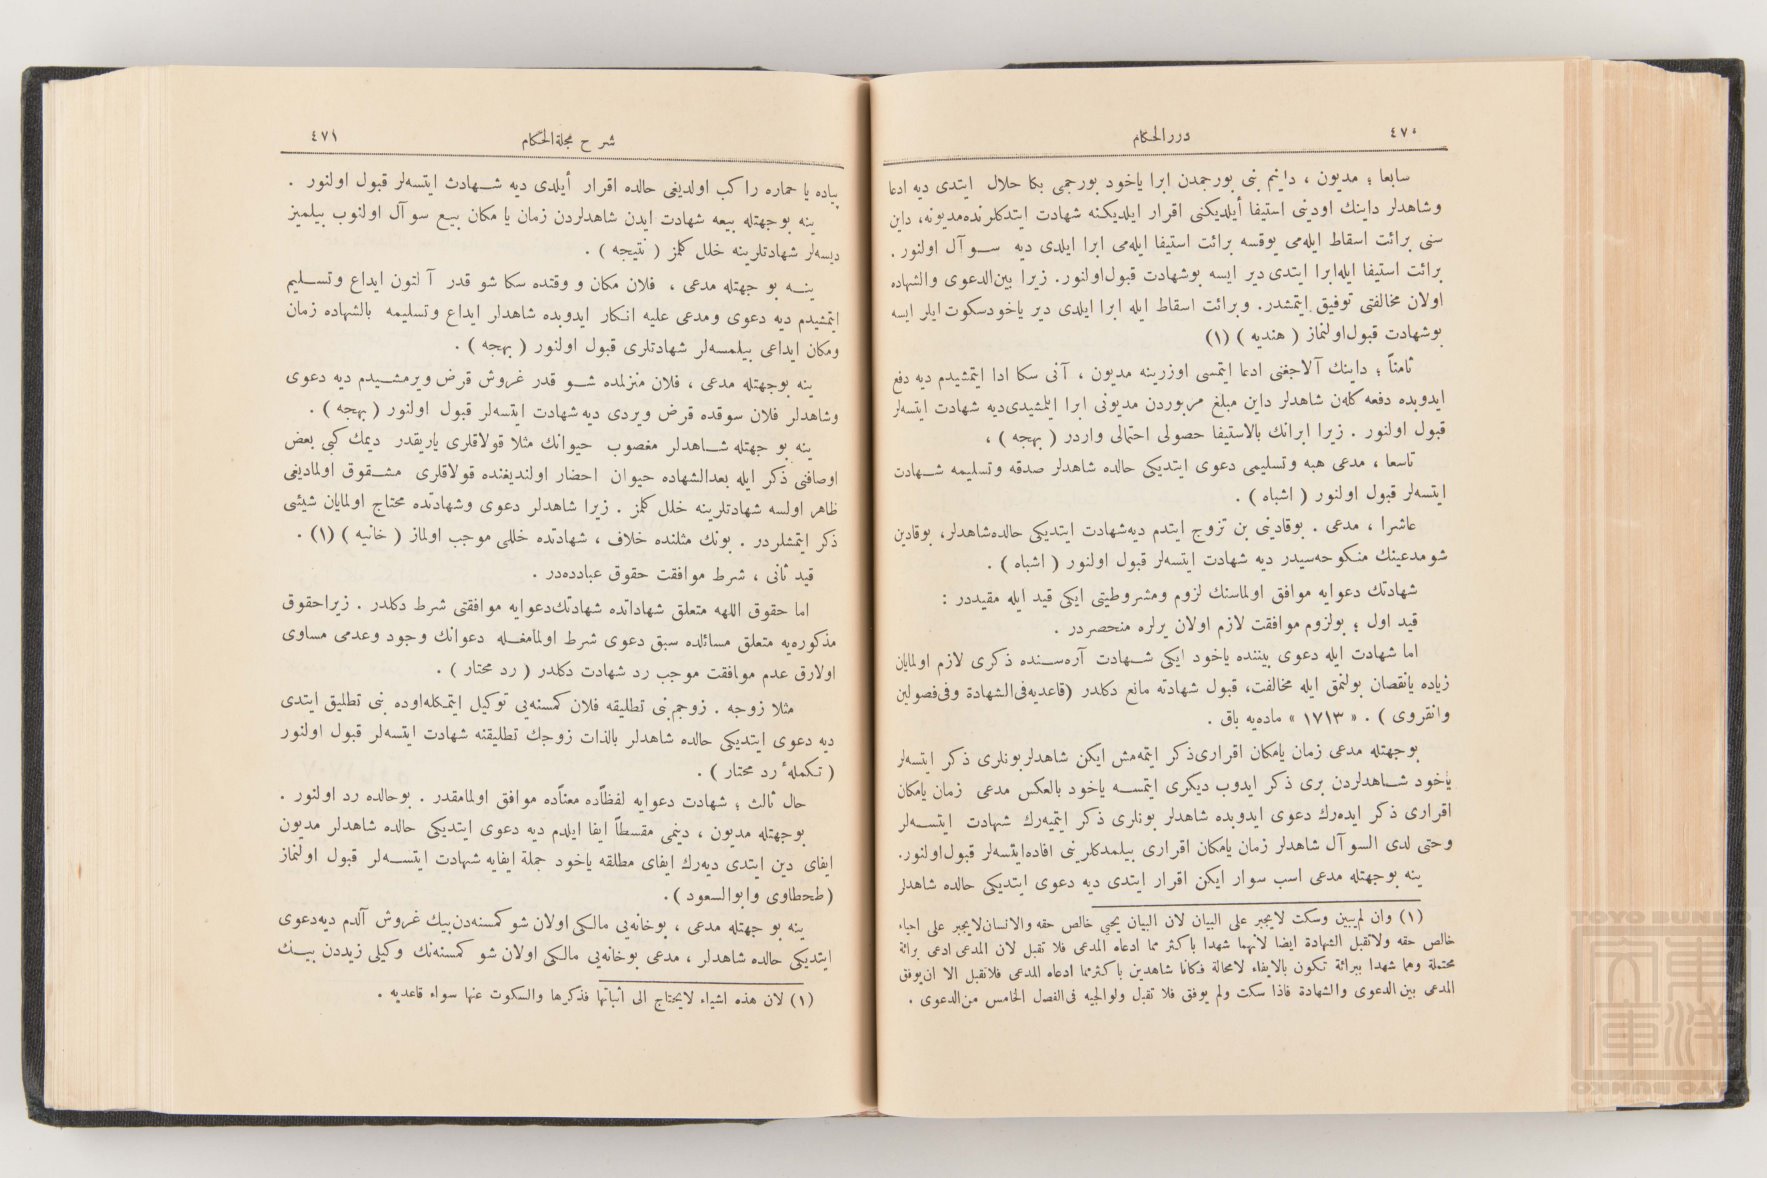 ٤٧٠
درر الحكام
سابعا ؛ مديون ، داينم بنى بورجمدن ابرا ياخود بورجمى بكا حلال ايتدى ديه ادعا
وشاهدلر داينك اودينى استيفا أيلديكنى اقرار ايلديكنه شهادت ايتدكلرنده مديونه، داين
سنى برائت اسقاط ايله مى يوقسه برائت استيفا ايله مى ابرا ايلدى ديه سوآل اولنور .
برائت استيفا ايله ابرا ايتدى دير ايسه بوشهادت قبول اولنور. زيرا بين الدعوى والشهاده
اولان مخالفتى توفيق ايتمشدر. وبرائت اسقاط ايله ابرا ايلدى دير ياخود سكوت ايلر ايسه
بوشهادت قبول اولنماز ( هنديه ) (١)
ثامناً ؛ داينك آلاجغنى ادعا ايتمسى اوزرينه مديون ، آنى سكا ادا ايتمشيدم ديه دفع
ايدوبده دفعه كلەن شاهدلر داين مبلغ مزبوردن مديونى ابرا ايلمشيدى ديه شهادت ايتسه لر
قبول اولنور . زيرا ابرانك بالاستيفا حصولى احتمالى واردر ( بهجه ) ،
تاسعا ، مدعى هبه وتسليمى دعوى ايتديكى حالده شاهدلر صدقه وتسليمه شهادت
ايتسه لر قبول اولنور ( اشباه ) .
عاشرا ، مدعى . بوقادينى بن تزوج ايتدم ديه شهادت ايتديكى حالده شاهدلر، بوقادين
شومدعينك منكوحه سيدر ديه شهادت ايتسه لر قبول اولنور ( اشباه ) .
شهادتك دعوايه موافق اولماسنك لزوم ومشروطيتى ايكى قيد ايله مقيددر :
قيد اول ؛ بولزوم موافقت لازم اولان يرلره منحصردر .
اما شهادت ايله دعوى بيننده ياخود ايكى شهادت آره سنده ذكرى لازم اولمايان
زياده يانقصان بولنمق ايله مخالفت، قبول شهادته مانع دكلدر (قاعديه فى الشهادة وفى فصولين
وانقروى ) . « ١٧١٣ » ماده يه باق .
بوجهتله مدعى زمان يامكان اقرارى ذكر ايتمه مش ايكن شاهدلر بونلرى ذكر ايتسه لر
ياخود شاهدلردن برى ذكر ايدوب ديكرى ايتمسه ياخود بالعكس مدعى زمان يامكان
اقرارى ذكر ايده رك دعوى ايدوبده شاهدلر بونلرى ذكر ايتميه رك شهادت ايتسه لر
وحتى لدى السوآل شاهدلر زمان يامكان اقرارى بيلمدكلرينى افاده ايتسه لر قبول اولنور.
ينه بوجهتله مدعى اسب سوار ايكن اقرار ايتدى ديه دعوى ايتديكى حالده شاهدلر
(١) وان لم يبين وسكت لايجبر على البيان لان البيان يحيى خالص حقه والانسان لايجبر على احياء
خالص حقه ولاتقبل الشهادة ايضا لانهما شهدا باكثر مما ادعاه المدعى فلا تقبل لان المدعى ادعى برائة
محتملة وهما شهدا ببرائة تكون بالايفاء لامحالة فكانا شاهدين باكثر مما ادعاه المدعى فلاتقبل الا ان يوفق
المدعى بين الدعوى والشهادة فاذا سكت ولم يوفق فلا تقبل ولوالجيه فى الفصل الخامس من الدعوى .
شرح مجلة الحكام
٤٧١
پياده يا حماره راكب اولديغى حالده اقرار أيلدى ديه شهادث ايتسه لر قبول اولنور .
ينه بوجهتله بيعه شهادت ايدن شاهدلردن زمان يا مكان بيع سوآل اولنوب بيلميز
ديسه لر شهادتلرينه خلل كلمز ( نتيجه ) .
ينه بو جهتله مدعى ، فلان مكان و وقتده سكا شو قدر آلتون ايداع وتسليم
ايتمشيدم ديه دعوى ومدعى عليه انكار ايدوبده شاهدلر ايداع وتسليمه بالشهاده زمان
ومكان ايداعى بيلمسه لر شهادتلرى قبول اولنور ( بهجه ) .
ينه بوجهتله مدعى ، فلان منزلمده شو قدر غروش قرض ويرمشيدم ديه دعوى
وشاهدلر فلان سوقده قرض ويردى ديه شهادت ايتسه لر قبول اولنور ( بهجه ) .
ينه بو جهتله شاهدلر مغصوب حيوانك مثلا قولاقلرى ياريقدر ديمك كبى بعض
اوصافنى ذكر ايله بعدالشهاده حيوان احضار اولنديغنده قولاقلرى مشقوق اولماديغى
ظاهر اولسه شهادتلرينه خلل كلمز . زيرا شاهدلر دعوى وشهادتده محتاج اولمايان شيئى
ذكر ايتمشلردر . بونك مثلنده خلاف ، شهادتده خللى موجب اولماز ( خانيه ) (١) .
قيد ثانى ، شرط موافقت حقوق عبادده در .
اما حقوق اللهه متعلق شهاداتده شهادتك دعوايه موافقتى شرط دكلدر . زيرا حقوق
مذكوره يه متعلق مسائلده سبق دعوى شرط اولمامغله دعوانك وجود وعدمى مساوى
اولارق عدم موافقت موجب رد شهادت دكلدر ( رد محتار ) .
مثلا زوجه . زوجم بنى تطليقه فلان كمسنه يى توكيل ايتمكله اوده بنى تطليق ايتدى
ديه دعوى ايتديكى حالده شاهدلر بالذات زوجك تطليقنه شهادت ايتسه لر قبول اولنور
( تكملهٴ رد محتار ) .
حال ثالث ؛ شهادت دعوايه لفظاًده معناًده موافق اولمامقدر . بوحالده رد اولنور .
بوجهتله مديون ، دينمى مقسطاً ايفا ايلدم ديه دعوى ايتديكى حالده شاهدلر مديون
ايفاى دين ايتدى ديه رك ايفاى مطلقه ياخود جملة ايفايه شهادت ايتسه لر قبول اولنماز
(طحطاوى وابوالسعود ) .
ينه بو جهتله مدعى ، بوخانه يى مالكى اولان شو كمسنه دن بيك غروش آلدم ديه دعوى
ايتديكى حالده شاهدلر ، مدعى بوخانه يى مالكى اولان شو كمسنه نك وكيلى زيددن بيك
(١) لان هذه اشياء لايحتاج الى اثباتها فذكرها والسكوت عنها سواء قاعديه .
TOYO BUNKO
東洋文庫
TOYO BUNKO